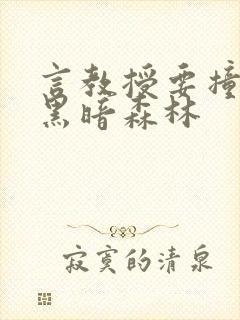 言教授要撞
黑暗森林
寂寞的清泉